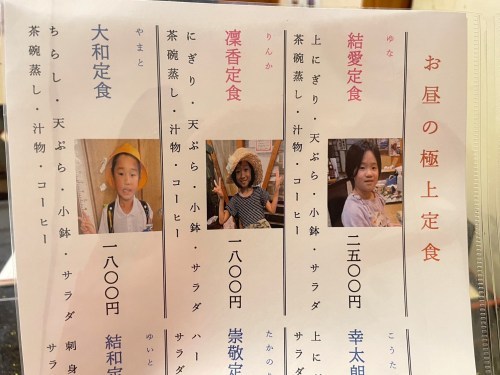 お昼の極上定食
ゆな
結愛定食
上にぎり・天ぷら・小鉢・サラダ
茶碗蒸し・汁物・コーヒー
二五〇〇円
りんか
凜香定食
にぎり・天ぷら・小鉢・サラダ
茶碗蒸し・汁物・コーヒー
一八〇〇円
やまと
大和定食
ちらし・天ぷら・小鉢・サラダ
茶碗蒸し・汁物・コーヒー
一八〇〇円
こうた
幸太朗
上に
サラダ
たかの
崇敬定
ハー
サラダ
ゆいと
結和定
刺身
サラ